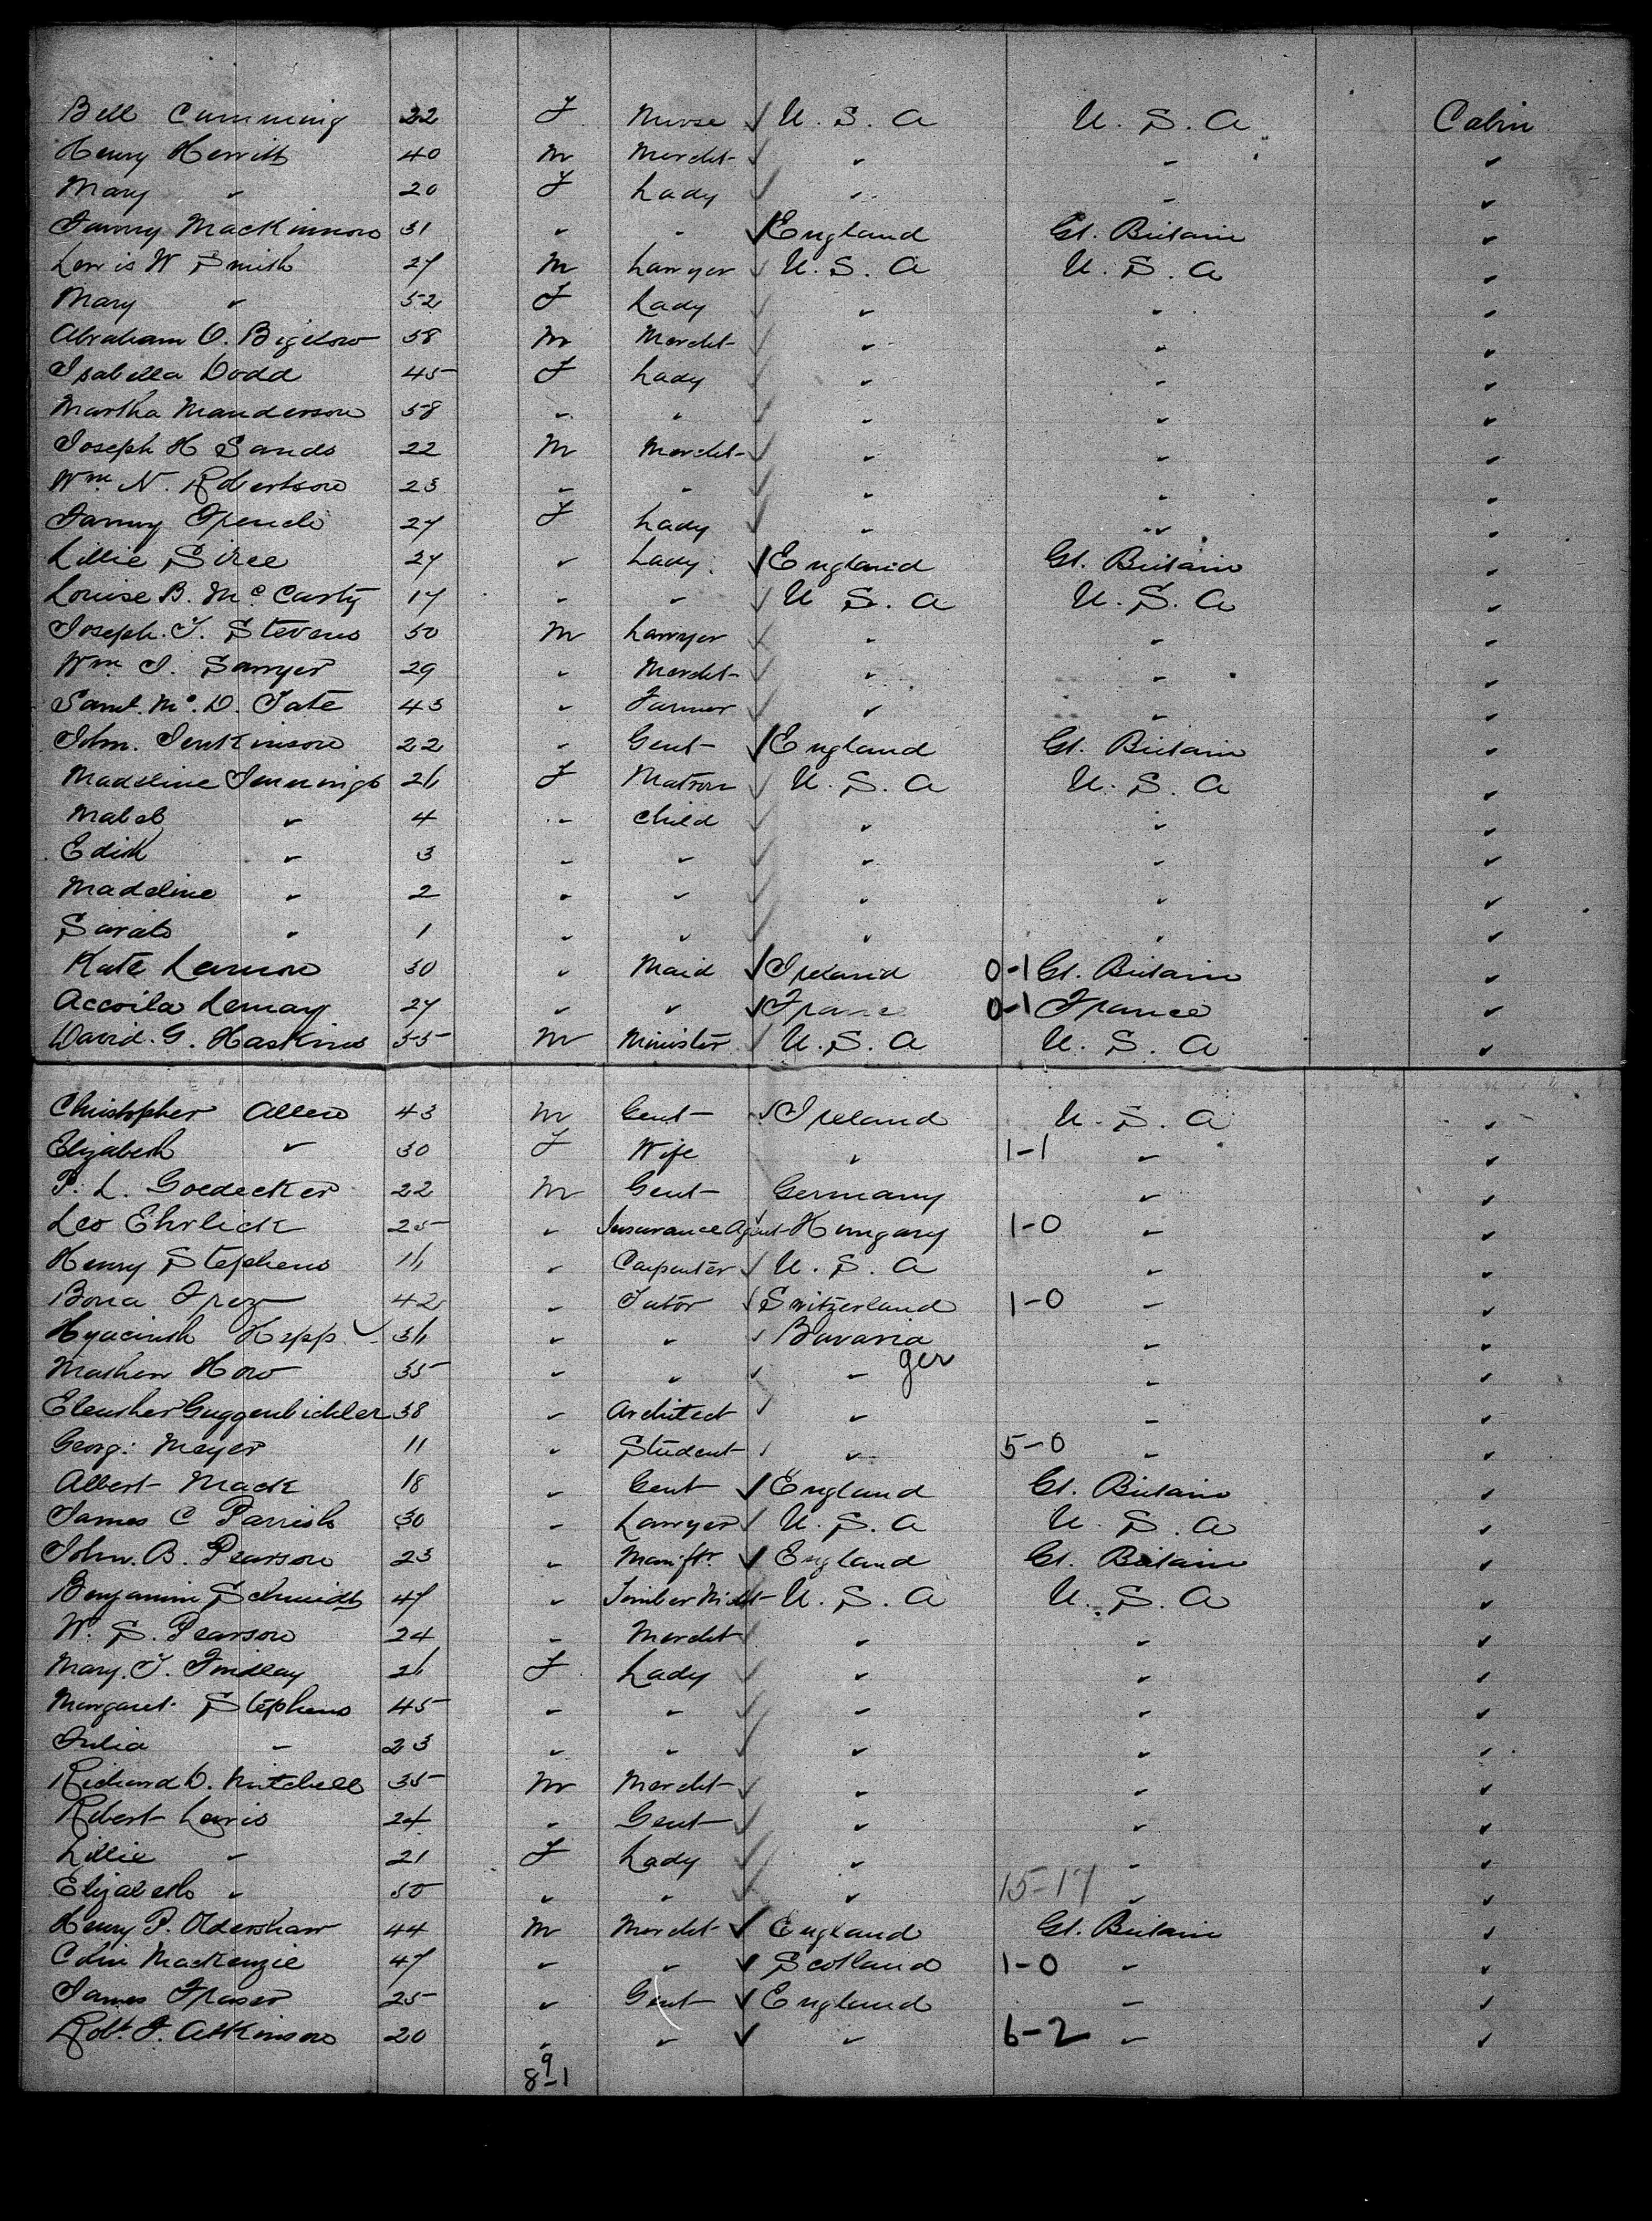 Bell Cumming 22 F Nurse ✓ U. S. A U. S. A Cabin
Henry Herritt 40 M Mercht ✓ " " "
Mary " 20 F Lady ✓ " " "
Fanny MacKinnon 31 " " ✓ England Gt. Britain "
Lewis W Smith 27 M Lawyer ✓ U. S. A U. S. A "
Mary " 52 F Lady ✓ " " "
Abraham O. Bigelow 58 M Mercht ✓ " " "
Isabella Dodd 45 F Lady ✓ " " "
Martha Manderson 58 " " ✓ " " "
Joseph H Sands 22 M Mercht ✓ " " "
Wm N. Robertson 23 " " ✓ " " "
Fanny French 27 F Lady ✓ " " "
Lillie Siree 27 " Lady ✓ England Gt. Britain "
Louise B. Mc Carty 17 " " ✓ U S. A U. S. A "
Joseph. T. Stevens 50 M Lawyer ✓ " " "
Wm J. Sawyer 29 " Mercht ✓ " " "
Saml. Mc. D. Tate 43 " Farmer ✓ " " "
John. Jenkinson 22 " Gent ✓ England Gt. Britain "
Madeline Jennings 26 F Matron ✓ U. S. A U. S. A "
Mabel " 4 " Child ✓ " " "
Edith " 3 " " ✓ " " "
Madeline " 2 " " ✓ " " "
Sarah " 1 " " ✓ " " "
Kate Lennon 30 " Maid ✓ Ireland 0-1 Gt. Britain "
Accoila Lemay 27 " " ✓ France 0-1 France "
David. G. Haskins 55 M Minister ✓ U. S. A U. S. A "
Christopher Allen 43 M Gent ✓ Ireland U. S. A "
Elizabeth " 30 F Wife " 1-1 " "
P. L. Goedecker 22 M Gent Germany " "
Leo Ehrlich 25 " Insurance Agent Hungary 1-0 " "
Henry Stephens 16 " Carpenter ✓ U. S. A " "
Bona Frey 42 " Tutor ✓ Switzerland 1-0 " "
Hyacinth Hepp ✓ 36 " " ✓ Bavaria " "
ger
Mathew How 35 " " ✓ " " "
Eleusher Guggenbichler 38 " Architect ✓ " " "
Georg: Meyer 11 " Student ✓ " 5-0 " "
Albert Mack 18 " Gent ✓ England Gt. Britain "
James C Parrish 30 " Lawyer ✓ U. S. A U. S. A "
John. B. Pearson 23 " Manftr. ✓ England Gt. Britain "
Benjamin Schmidt 47 " Timber Mcht U. S. A U. S. A "
W. S. Pearson 24 " Mercht ✓ " " "
Mary. T. Findlay 26 F Lady ✓ " " "
Margaret Stephens 45 " " ✓ " " "
Julia " 23 " " ✓ " " "
Richard D. Mitchell 35 M Mercht ✓ " " "
Robert Lewis 24 " Gent ✓ " " "
Lillie " 21 F Lady ✓ " " "
Elizabeth " 50 " " ✓ " 15-17 " "
Henry P. Oldershaw 44 M Mercht ✓ England Gt. Britain "
Colin MacKenzie 47 " " ✓ Scotland 1-0 " "
James Fraser 25 " Gent ✓ England " "
Robt. F. Atkinson 20 " " ✓ " 6-2 " "
9
8-1